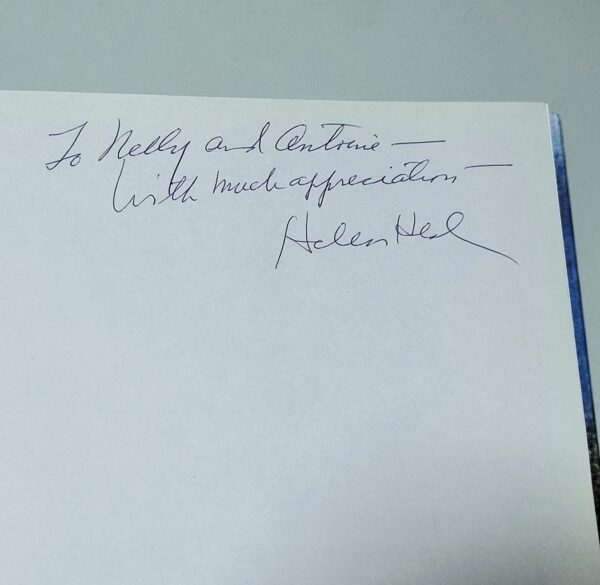 To Nelly and Antoine —
With much appreciation —
Helen